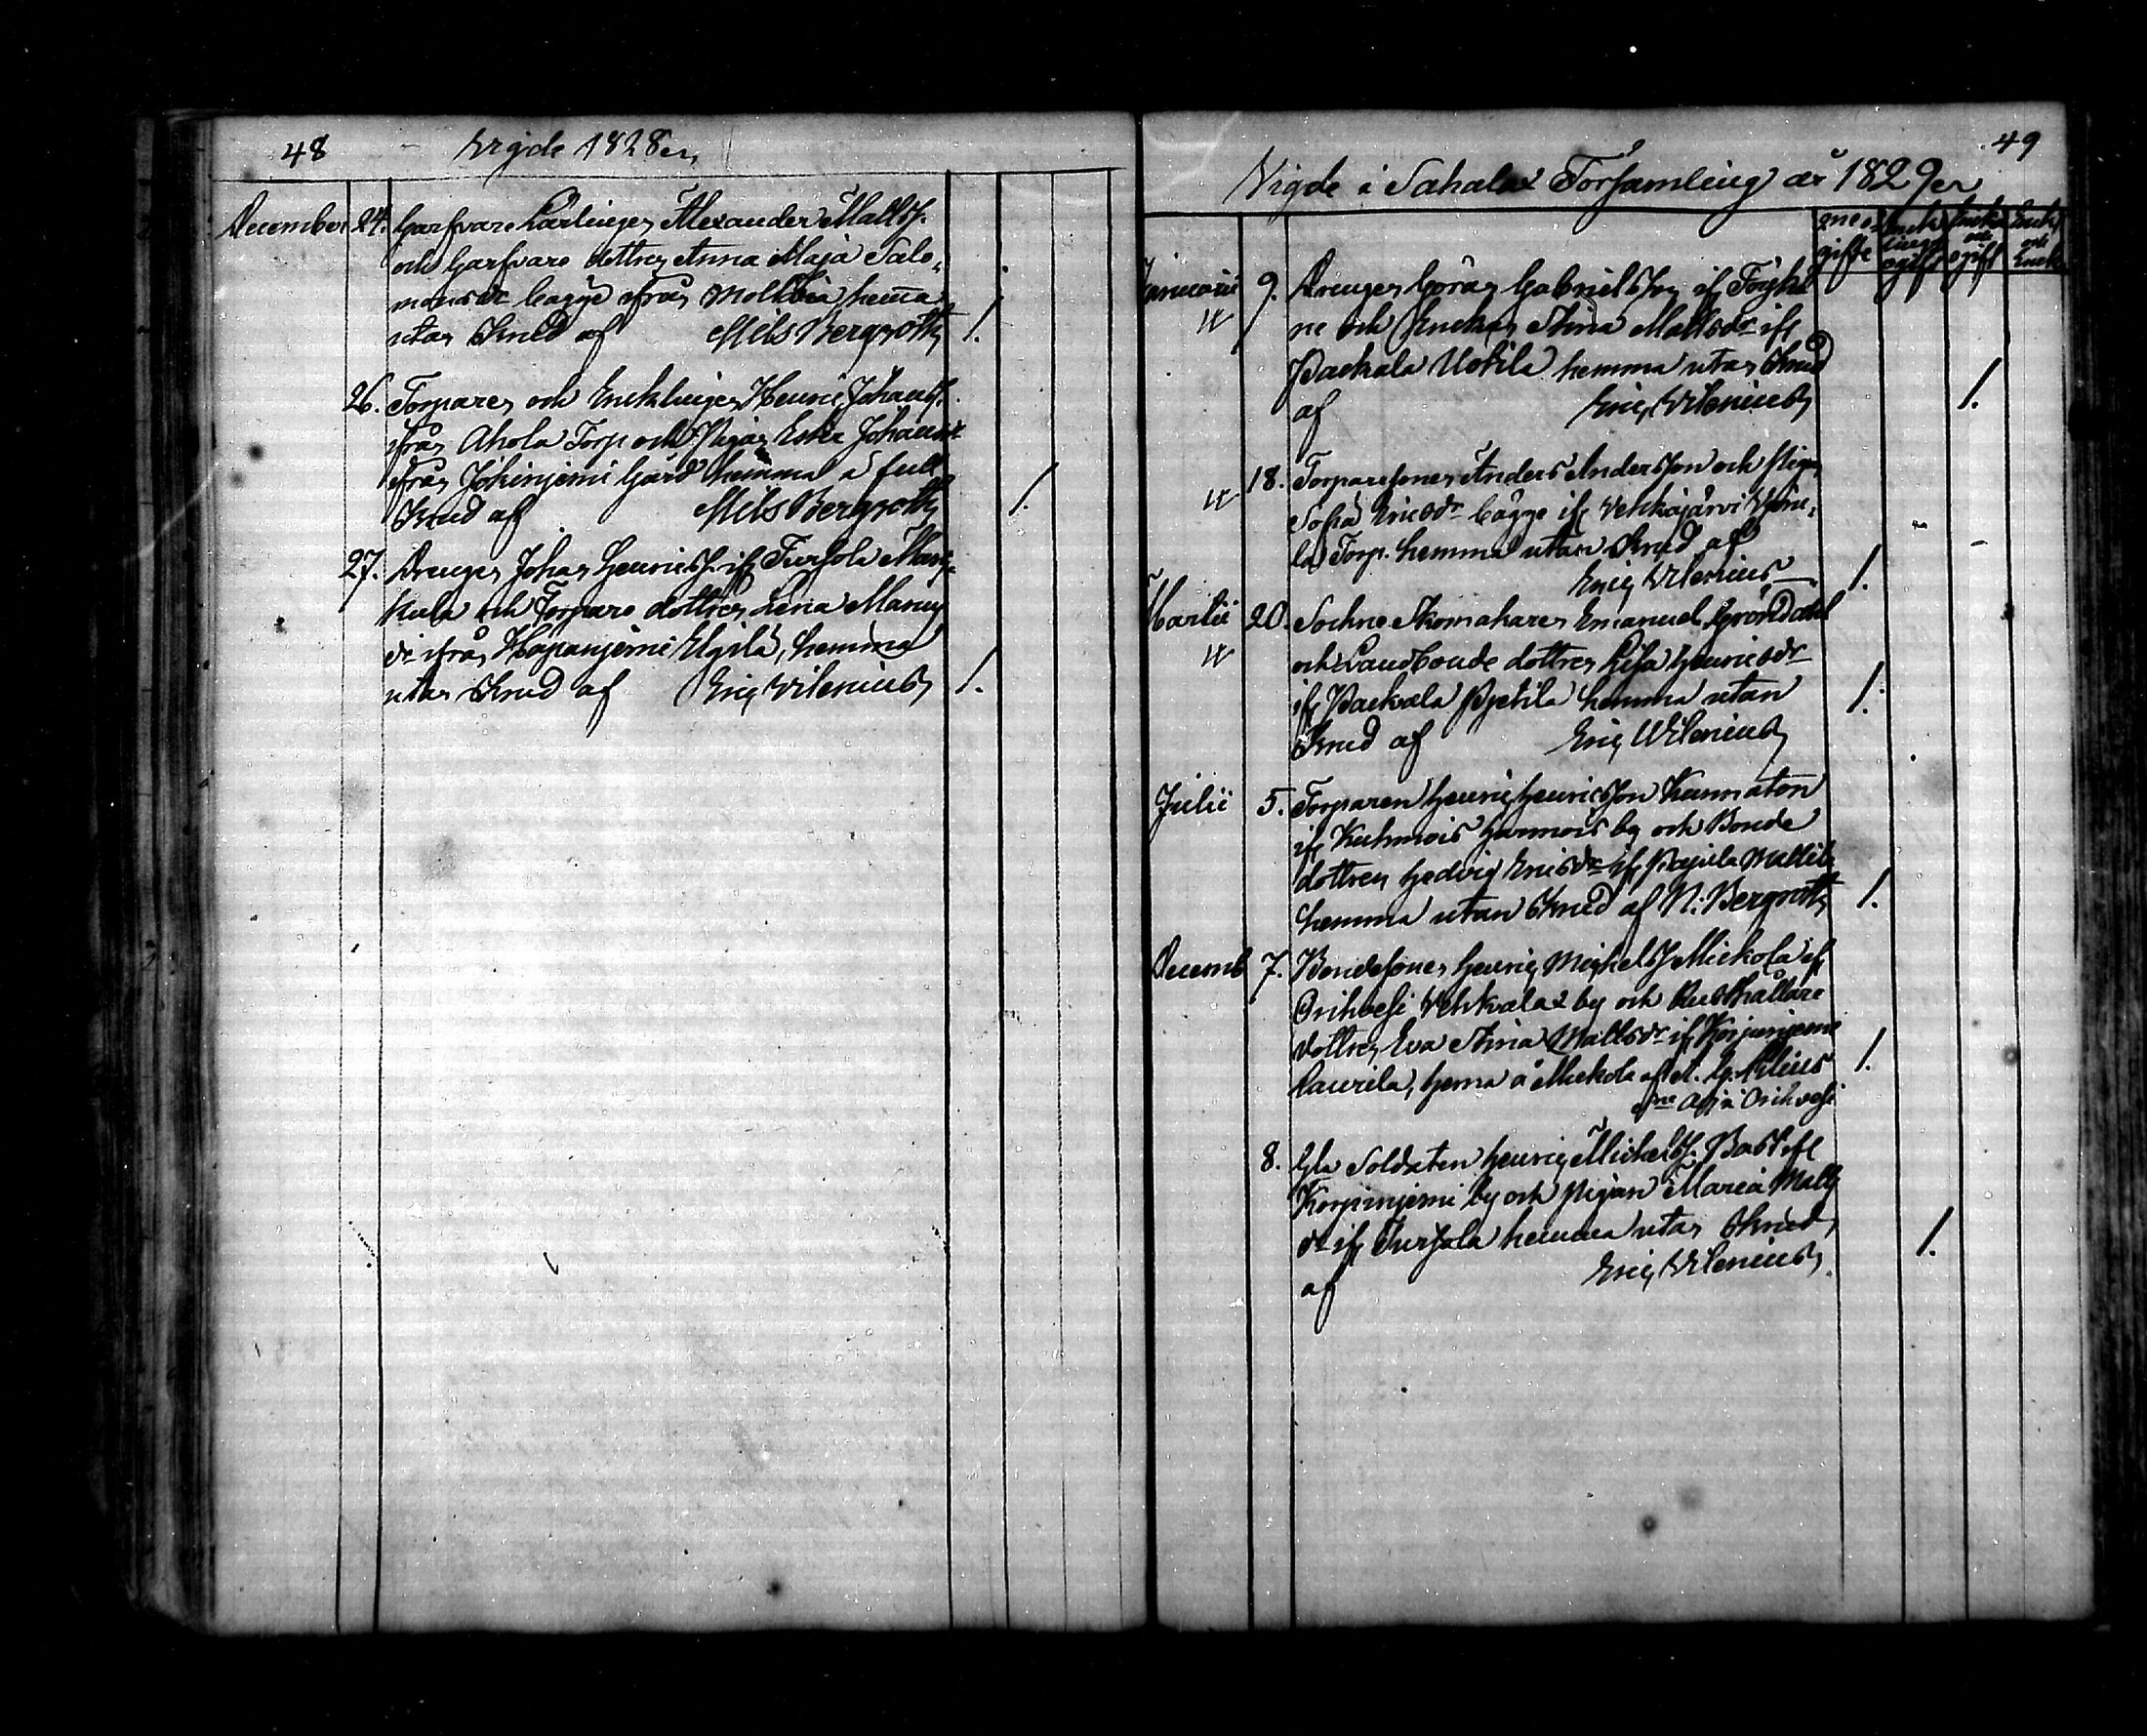 48
Vigde 1828 en
December 24. Garfvare Lärlingen Alexander Mattsf.
och Garfvare dottren Anna Maja Salo-
monsdr bägge ifrån Moltbia hemma
utan Skrud af Nils Bergroth 1.
26. Torparen och Encklingen Henric Johansf.
ifrån Ahola Torp och Pigan Eska Johansdr
ifrån Jokinjemi Gård hemma i full
Skrud af Nils Bergroth 1.
27. Drengen Johan Henricsf. if. Tursola
kula och Torpare dottren Lena
dr ifrån Hapanjemi Ylgila, hemma
utan Skrud af Eric Vilenius 1.
49
Vigde i Sahalax Församling år 1829 en
ogifte
Enckling ogift
Encka och ogift
Enckl. och Encka
Januarii 9. Drengen Göran Gabrielsson if.
ne och Enckan Anna Mattsdr if.
Packala Uotila hemma utan Skrud
af Eric Vilenius 1.
18. Torparesonen Anders Andersson och Pigan
Sofia Ericsdr bägge if. Vehkajärvi
la Torp. hemma utan Skrud af
Eric Vilenius 1.
Martii 20. Sockne Skomakaren Emanuel Gröndahl
och Landbonde dottren Lisa Henricsdr
if. Packala Pyetila hemma utan 1.
Skrud af Eric Vilenius
Julii 5. Torparen Henric Henricsson Kunnaton
if. Kuhmois Harmois by och Bonde
dottren Hedvig Ericsdr if. Pajula Mattila
hemma utan Skrud af N. Bergroth 1.
Decemb 7. Bondesonen Henric Michelsf. Mickola if.
Orihvesi Vehkalax by och Rusthållare
dottren Eva Stina Mattsdr if. Korpinjemi
Laurila, hema å Mickola af A. G. 1.
i Orihvesi
8. Gla Soldaten Henric Michelsf. Bast if.
Korpinjemi by och pigan Maria Matts
dr if. Tursola hemma utan Skrud 1.
af Eric Vilenius